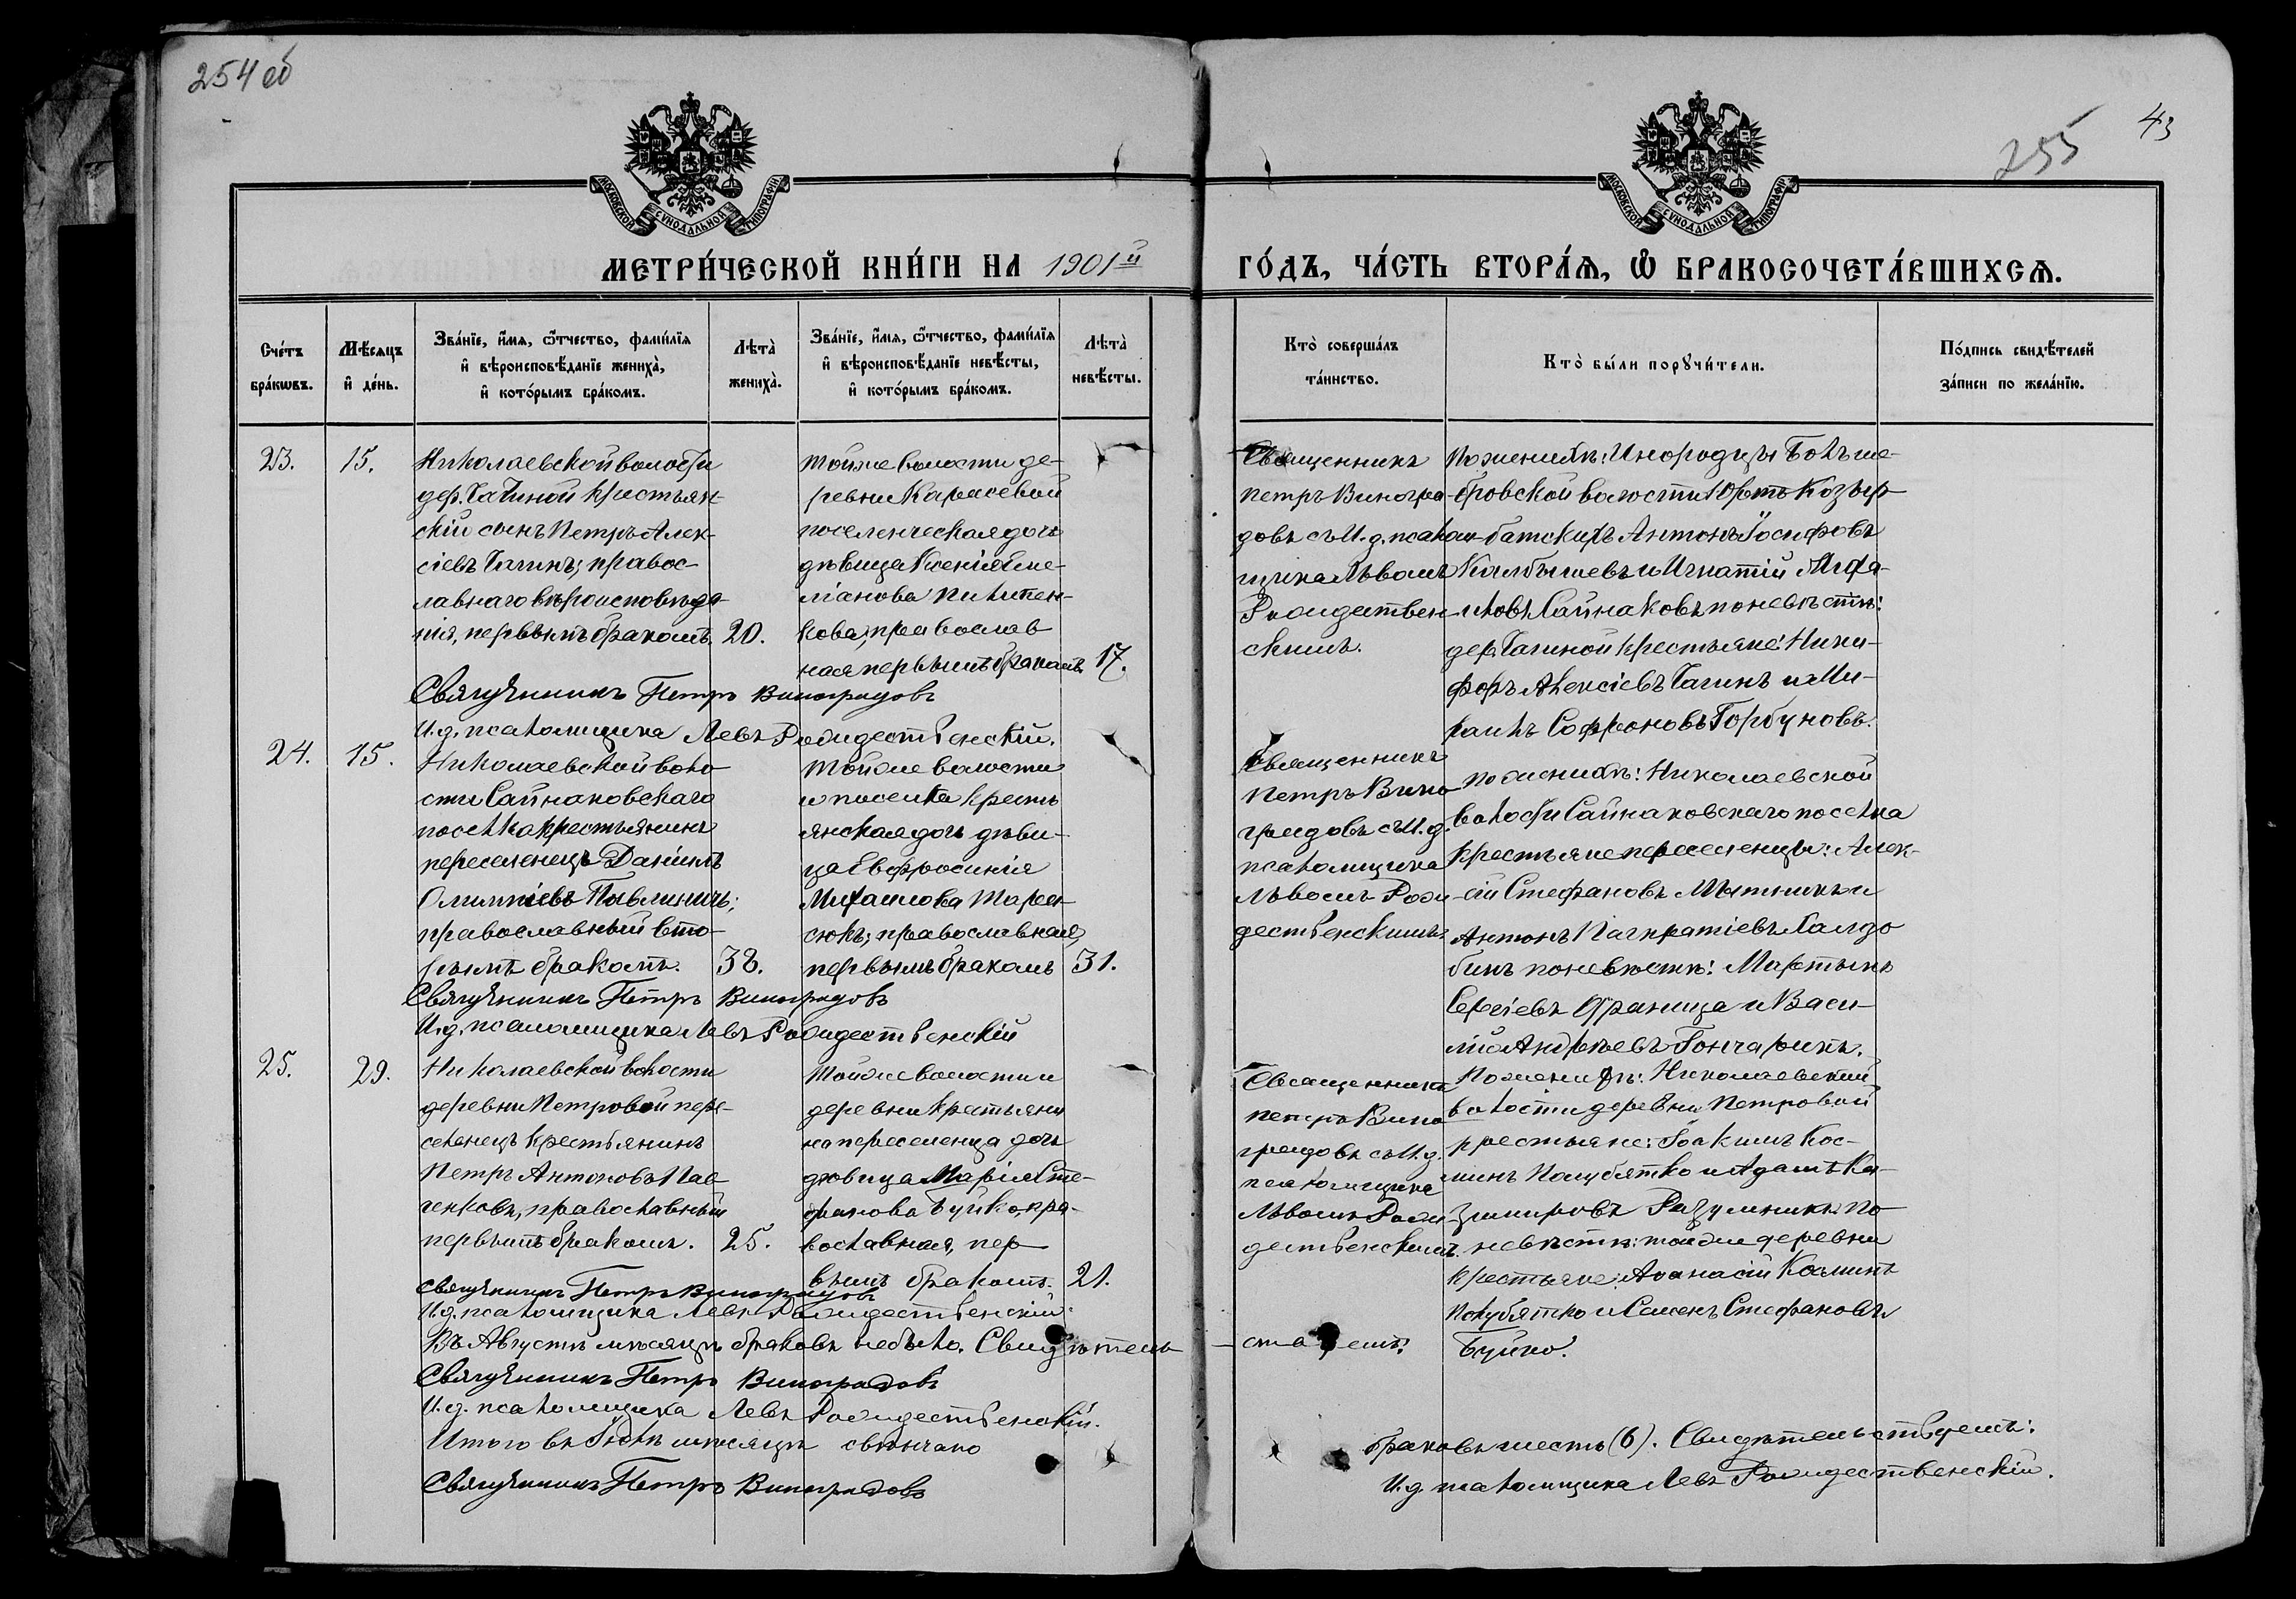 254 об
43
255
МОСКОВСКОЙ СѴНОДАЛЬНОЙ ТИПОГРАФІИ
МОСКОВСКОЙ СѴНОДАЛЬНОЙ ТИПОГРАФІИ
МЕТРИ́ЧЕСКОЙ КНИ́ГИ НА 1901й ГО́ДЪ, ЧА́СТЬ ВТОРА́Ѧ, Ѡ҆ БРАКОСОЧЕТА́ВШИХСѦ.
Сче́тъ
бра́кѡвъ.
Мѣ́сяцъ
и҆ де́нь.
Зва́нїе, и҆́мя, ѻ҆́тчество, фами́лїя
и҆ вѣроисповѣ́данїе жениха̀,
и҆ кото́рымъ бра́комъ.
Лѣта̀
жениха̀.
Зва́нїе, и҆́мя, ѻ҆́тчество, фами́лїя
и҆ вѣроисповѣ́данїе невѣ́сты,
и҆ кото́рымъ бра́комъ.
Лѣта̀
невѣ́сты.
Кто̀ соверша́лъ
та́инство.
Кто̀ бы́ли порꙋчи́тели.
По́дпись свидѣ́телей
за́писи по жела́нїю.
23.
15.
Николаевской волости
дер. Чагиной крестьян-
скій сынъ Петръ Алек-
сіевъ Чагинъ; правос-
лавнаго вѣроисповѣда-
нія, первымъ бракомъ.
20.
тойже волости де-
ревни Карасевой
поселенческая дочь
дѣвица Ксенія Еме-
ліанова Пилипен-
кова, православ
ная первымъ бракомъ.
17.
Священникъ
Петръ Виногра-
довъ съ И. д. псалом-
щика Львомъ
Рождествен-
скимъ.
По женихѣ: Инородцы
бровской волости Юртъ
батскихъ Антонъ Іосифовъ
Калбышевъ и Игнатій
Сайнаковъ по невѣстѣ:
дер. Чагиной крестьяне: Ники-
форъ Алексіевъ Чагинъ и Ми-
хаилъ Софроновъ Горбуновъ.
Священникъ Петръ Виноградовъ
И. д. псаломщика Левъ Рождественскій.
24.
15.
Николаевской воло
сти Сайнаковскаго
поселка крестьянинъ
переселенецъ Даніилъ
Олимпіевъ Павлиничъ;
православный вто-
рымъ бракомъ.
38.
тойже волости
и поселка кресть
янская дочь дѣви-
ца Евфросинія
Михаилова Тарасюкъ; православная,
первымъ бракомъ
31.
Священникъ
Петръ Вино
градовъ съ И. д.
псаломщика
Львомъ Рож-
дественскимъ.
по женихѣ: Николаевской
волости Сайнаковскаго поселка
крестьяне переселенцы: Алек-
сій Стефановъ Мытникъ и
Антонъ Панкратіевъ
по невѣстѣ: Мартынъ
Сергіевъ Франица и Васи-
лій Андреевъ Гончарикъ.
Священникъ Петръ Виноградовъ
И. д. псаломщика Левъ Рождественскій
25.
29.
Николаевской волости
деревни Петровой пере-
селенецъ крестьянинъ
Петръ Антоновъ
православный
первымъ бракомъ.
25.
тойже волости и
деревни крестьяни
на переселенца дочь
дѣвица Марія Сте-
фанова Буйко, пра-
вославная, пер
вымъ бракомъ.
21.
Священникъ
Петръ Вино
градовъ съ И. д.
псаломщика
Львомъ Рож-
дественскимъ.
По женихѣ: Николаевской
волости деревни Петровой
крестьяне: Іоакимъ Кос-
минъ Полубятко и Адамъ Ка-
зимировъ Разумникъ: По
невѣстѣ: тойже деревни
крестьяне: Аѳанасій Косминъ
Полубятко и Семенъ Стефановъ
Буйко.
Священникъ Петръ Виноградовъ
И. д. псаломщика Левъ Рождественскій.
Въ Августѣ мѣсяцѣ браковъ не было. Свидѣтель-
ствуемъ:
Священникъ Петръ Виноградовъ
И. д. псаломщика Левъ Рождественскій.
Итого въ Іюлѣ мѣсяцѣ свѣнчано
браковъ шесть (6). Свидѣтельствуемъ:
Священникъ Петръ Виноградовъ
И. д. псаломщика Левъ Рождественскій.